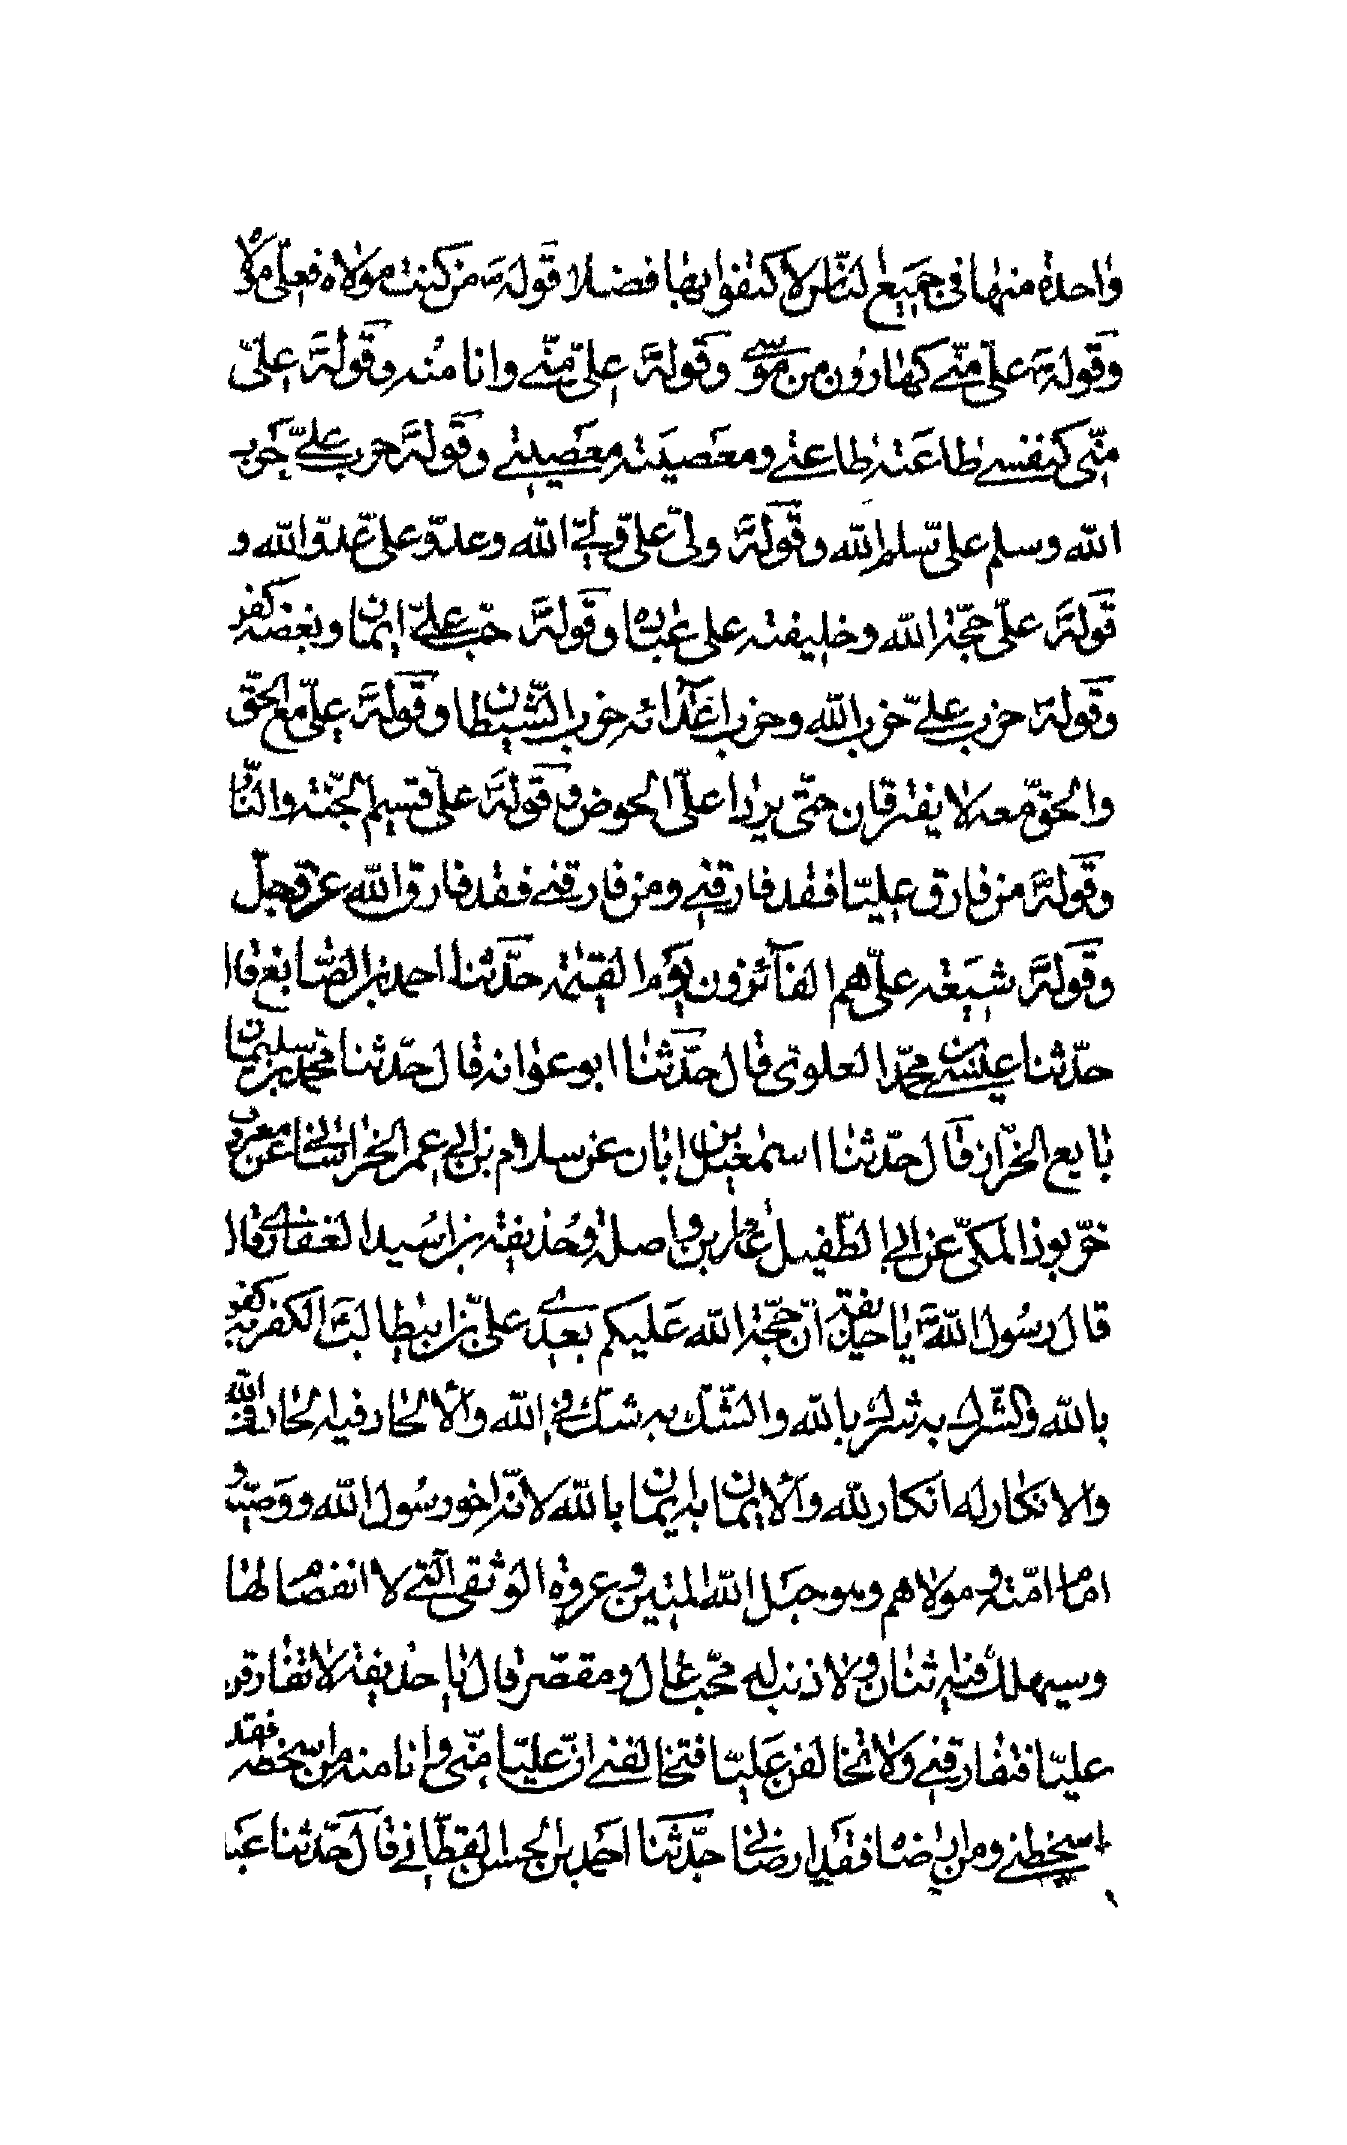 واحدة منها في جميع الناس لاكتفوا بها فضلا قوله ص من كنت مولاه فعلي مولاه
وقوله ص علي منّي كهارون من موسى وقوله ص علي منّي وانا منه وقوله ص علي
منّي كنفسي طاعته طاعتي ومعصيته معصيتي وقوله ص حرب علي حرب
الله وسلم علي سلم الله وقوله ص ولي علي ولي الله وعدو علي عدو الله و
قوله ص علي حجّة الله وخليفته على عباده وقوله ص حب علي ايمان وبغضه كفر
وقوله ص حزب علي حزب الله وحزب اعدائه حزب الشيطان وقوله ص علي مع الحق
والحق معه لا يفترقان حتّى يردا علي الحوض وقوله ص علي قسيم الجنّة والنّار
وقوله ص من فارق عليّا فقد فارقني ومن فارقني فقد فارق الله عز وجل
وقوله ص شيعة علي هم الفآئزون يوم القيمة حدّثنا احمد بن الصّايغ قال
حدّثنا عيسى بن محمّد العلوي قال حدّثنا ابو عوانه قال حدّثنا محمد بن سليمان
بن بايع الخرّاز قال حدّثنا اسمعيل بن ابان عن سلام بن ابي عمر الخراساني عن معروف بن
خرّبوذ المكّي عن ابي الطّفيل عامر بن واصلة وحذيفة بن اسيد الغفاري قال
قال رسول الله ص يا حذيفة انّ حجّة الله عليكم بعدي علي بن ابيطالب ع الكفر به كفر
بالله والشّرك به شرك بالله والشّك به شك في الله والالحاد فيه الحاد في الله
والانكار له انكار لله والايمان به ايمان بالله لانّه اخو رسول الله ووصيّه و
امام امّته ومولاهم وهو حبل الله المتين وعروة الوثقى الّتي لا انفصام لها
وسيهلك فيه اثنان ولا ذنب له محب غال ومقصّر قال يا حذيفة لا تفارقن
عليّا فتفارقني ولا تخالفن عليّا فتخالفني انّ عليّا منّي وانا منه من اسخطه فقد
اسخطني ومن ارضاه فقد ارضاني حدّثنا احمد بن الحسن القطّاني قال حدّثنا عبد